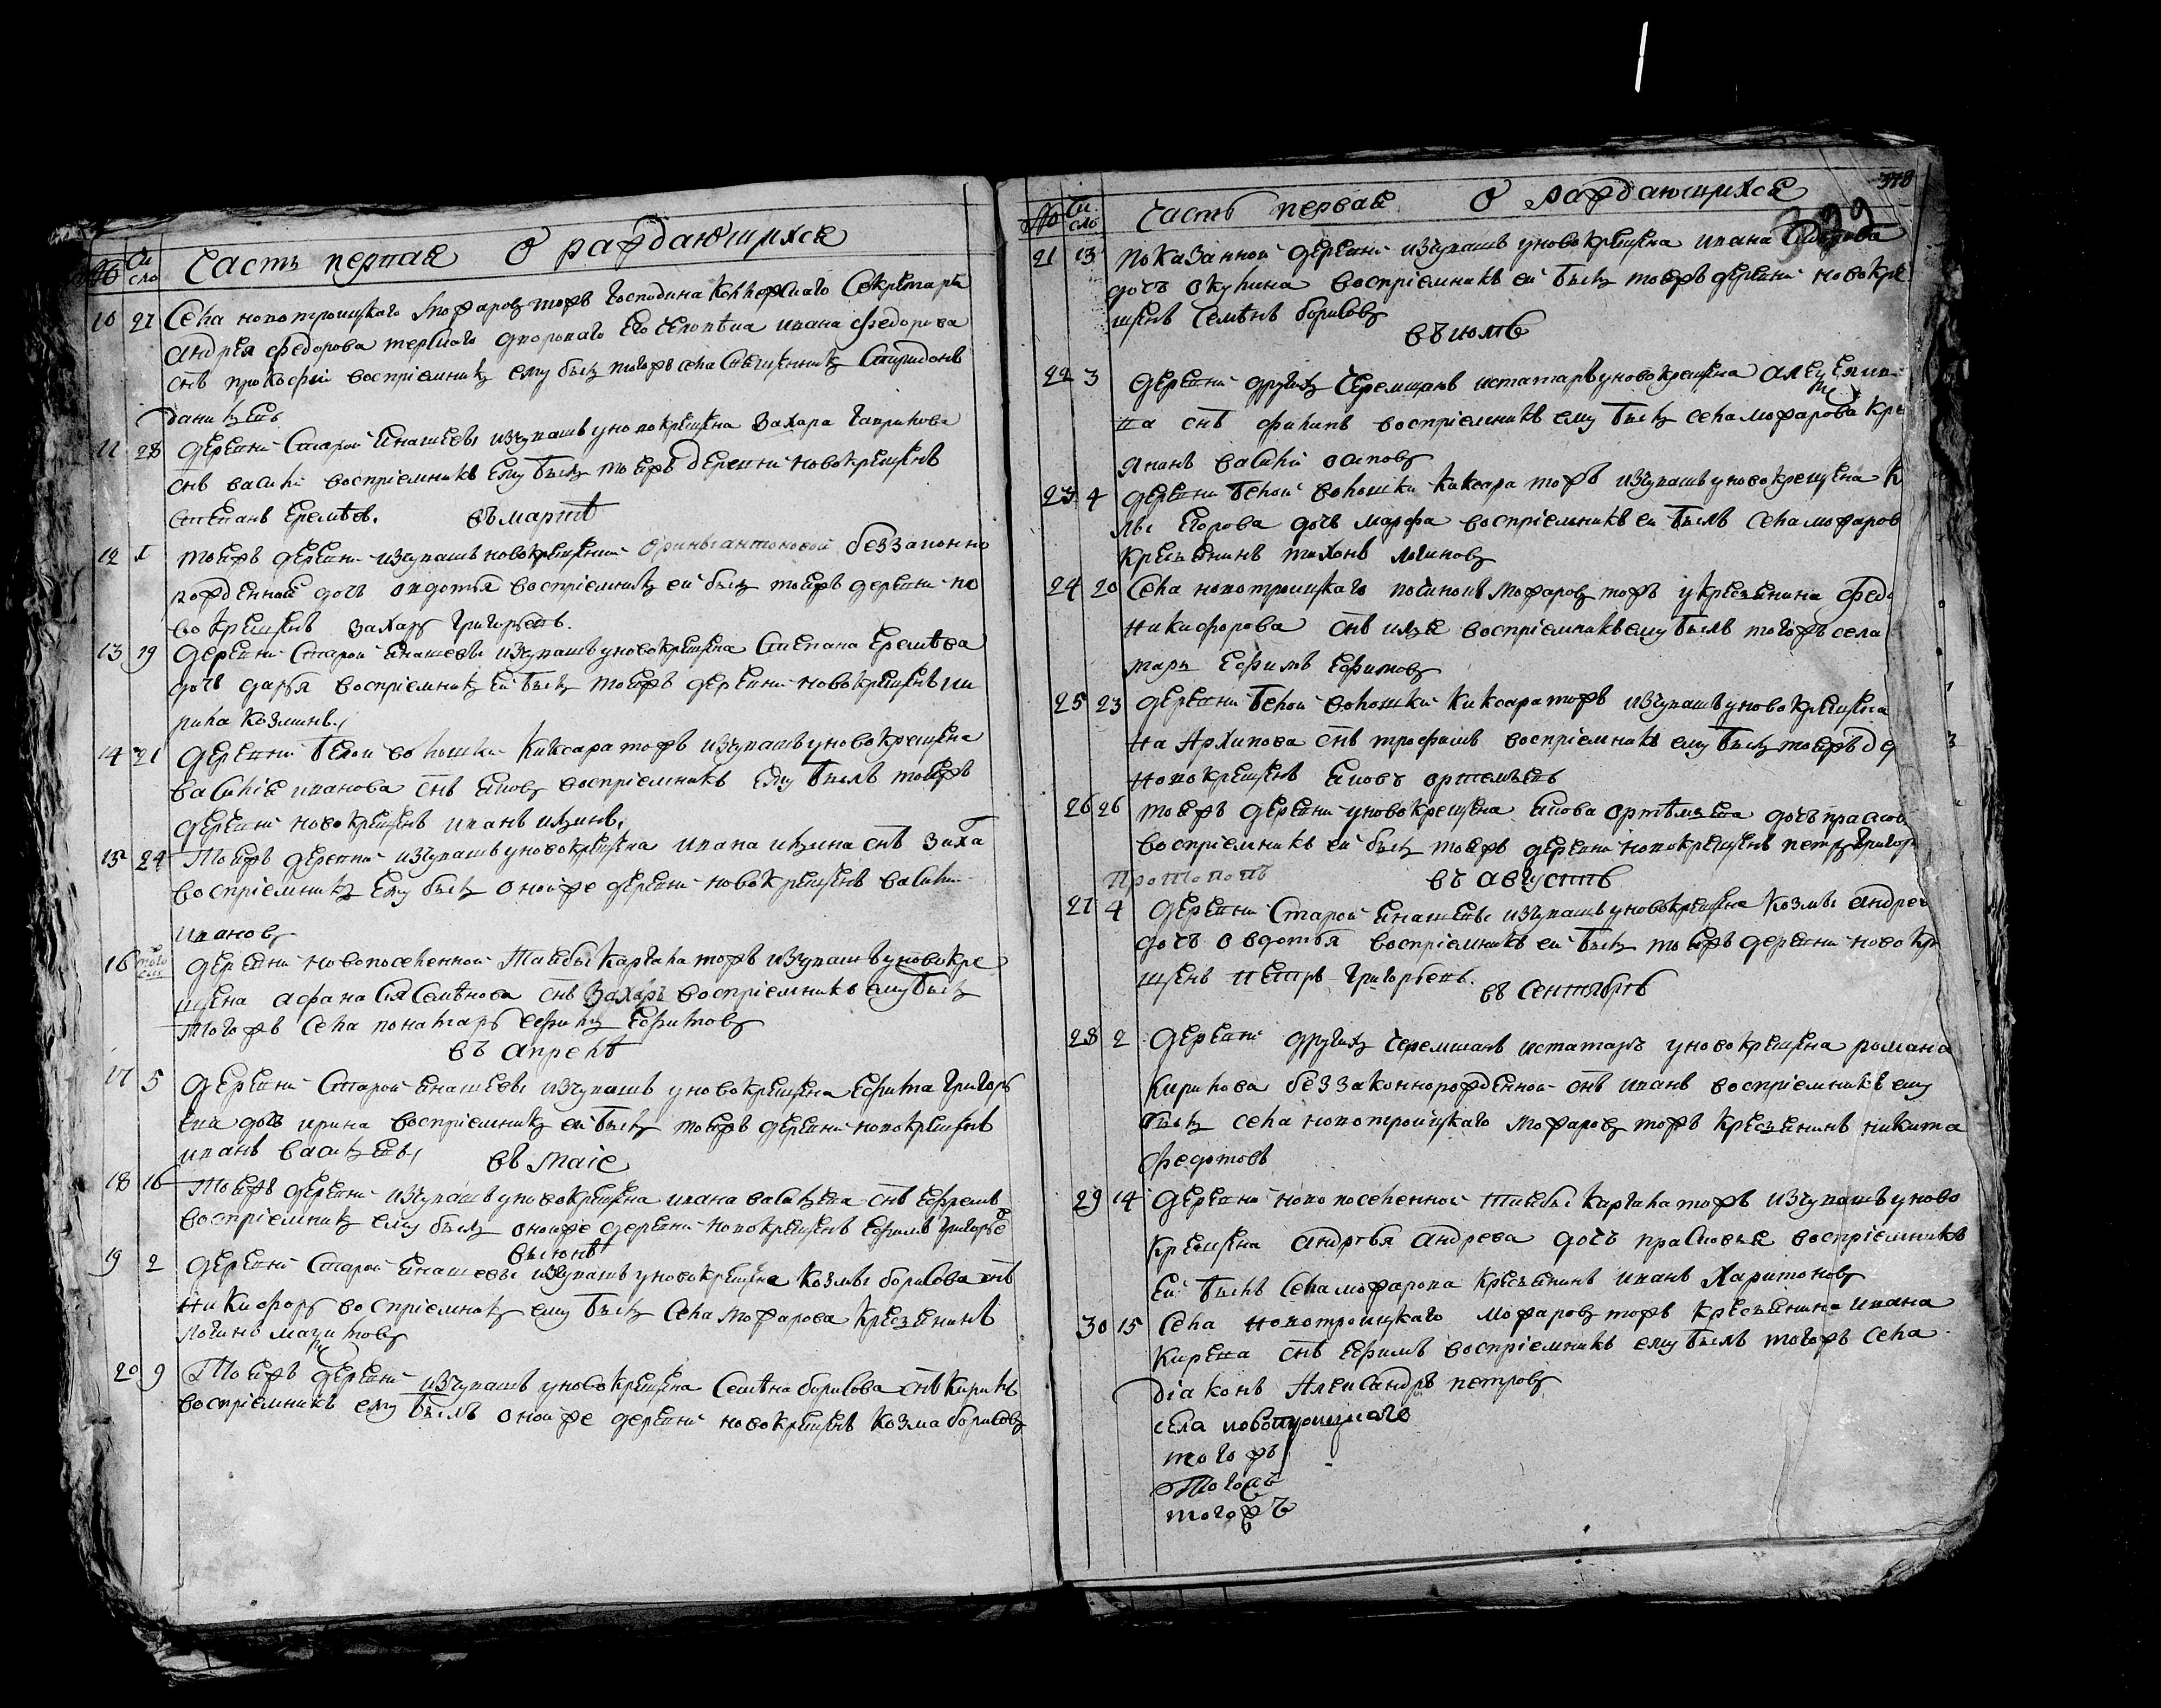 № Число Часть первая О раждающихся
10 27 Села новотроицкаго Мофаров тожъ Господина коллежскаго Секретаря
андрея федорова дворового Его человека ивана федорова
снъ прокофей восприемникъ ему былъ тогожъ села Священникъ Спиридонъ
данилъевъ
11 28 деревни Старой Енашевы изчувашъ уновокрещена Захара Гаврилова
снъ васили восприемникъ Ему былъ тоежъ деревни новокрещенъ
степанъ Еремѣев. въ мартѣ
12 1 тоежъ деревни изчувашъ новокрещенки орины антоновой беззаконно
рожденной дочь овдотья восприемникъ ей былъ тоежъ деревни но
вокрещенъ Захаръ Григорьевъ.
13 19 деревни Старой Енашевы изчувашъ уновокрещена Степана Еремѣева
дочь дарья восприемникъ Ей былъ тоежъ деревни новокрещенъ
козминъ
14 21 деревни белой воложки Киксара тожъ изчувашъ уновокрещена
василия иванова снъ Еновъ восприемникъ Ему былъ тоежъ
деревни новокрещенъ иванъ ильинъ
15 24 тоежъ деревни изчувашъ уновокрещена ивана ильина снъ Заха
восприемникъ Ему былъ оной же деревни новокрещенъ васили
ивановъ
16 того деревни новопоселенной Таябы Каргала тожъ изчувашъ уновокре
щена афанасия Семѣнова снъ Захаръ восприемникъ ему былъ
тогожъ села понамарь ефимъ Ефимовъ
въ апрелѣ
17 5 деревни Старой Енашевы изчувашъ уновокрещена Ефима Григорь
ева дочь ирина восприемникъ ей былъ тоежъ деревни новокрещенъ
иванъ васильевъ въ маiе
18 16 тоежъ деревни изчувашъ уновокрещена ивана васильева снъ Ефремъ
восприемникъ ему былъ оной же деревни новокрещенъ Ефимъ Григорье
въ июнѣ
19 2 деревни Старой Енашевы изчувашъ уновокрещена козмы борисова снъ
Никифоръ восприемникъ ему былъ села Мофарова кресьенинъ
логинъ
20 9 тоежъ деревни изчувашъ уновокрещена Семѣна борисова снъ Кирилъ
восприемникъ ему былъ оной же деревни новокрещенъ козма борисовъ
378
399
№ Число Часть первая О раждающихся
21 13 показанной деревни изчувашъ уновокрещена ивана
дочь окулина восприемникъ ей былъ тоежъ деревни новокре
щенъ Семѣнъ борисовъ
въ июлѣ
22 3 деревни другихъ Черемшанъ истатаръ уновокрещена
ва снъ филипъ восприемникъ ему былъ села мофарова кре
янинъ васили осиповъ
23 4 деревни белой воложки Киксара тожъ изчувашъ уновокрещена К
мы Егорова дочь марфа восприемникъ ей былъ села мофаров
кресьенинъ тихонъ логиновъ
24 20 Села новотроицкаго Мофаров тожъ укресьенина федо
никифорова снъ илья восприемникъ ему былъ тогожъ села
марь Ефимъ Ефимовъ
25 23 деревни белой воложки Киксара тожъ изчувашъ уновокрещена
на Архипова снъ трофимъ восприемникъ ему былъ тоежъ де
новокрещенъ Еновъ ортемьевъ
26 26 тоежъ деревни уновокрещена Енова ортѣмьева дочь прасков
восприемникъ ей былъ тоежъ деревни новокрещенъ петръ Григорь
протопопъ въ августѣ
27 4 деревни Старой Енашевы изчувашъ уновокрещена козмы андрее
дочь овдотья восприемникъ ей былъ тоежъ деревни новокре
щенъ петръ Григорьевъ.
въ Сентябрѣ
28 2 деревни другихъ Черемшанъ истатаръ уновокрещена романа
Кирилова беззаконнорожденной снъ иванъ восприемникъ ему
былъ села новотроицкаго Мофаров тожъ кресьенинъ никита
федотовъ
29 14 деревни новопоселенной таябы Каргала тожъ изчувашъ уново
крещена андрѣя андреева дочь прасковья восприемникъ
ей былъ села мофарова кресьенинъ иванъ Харитоновъ
30 15 Села новотроицкаго Мофаров тожъ кресьенина ивана
Кирева снъ Ефимъ восприемникъ ему былъ тогожъ села
дiаконъ Александръ петровъ
села новотроицкаго
тогожъ
тогожъ
тогожъ